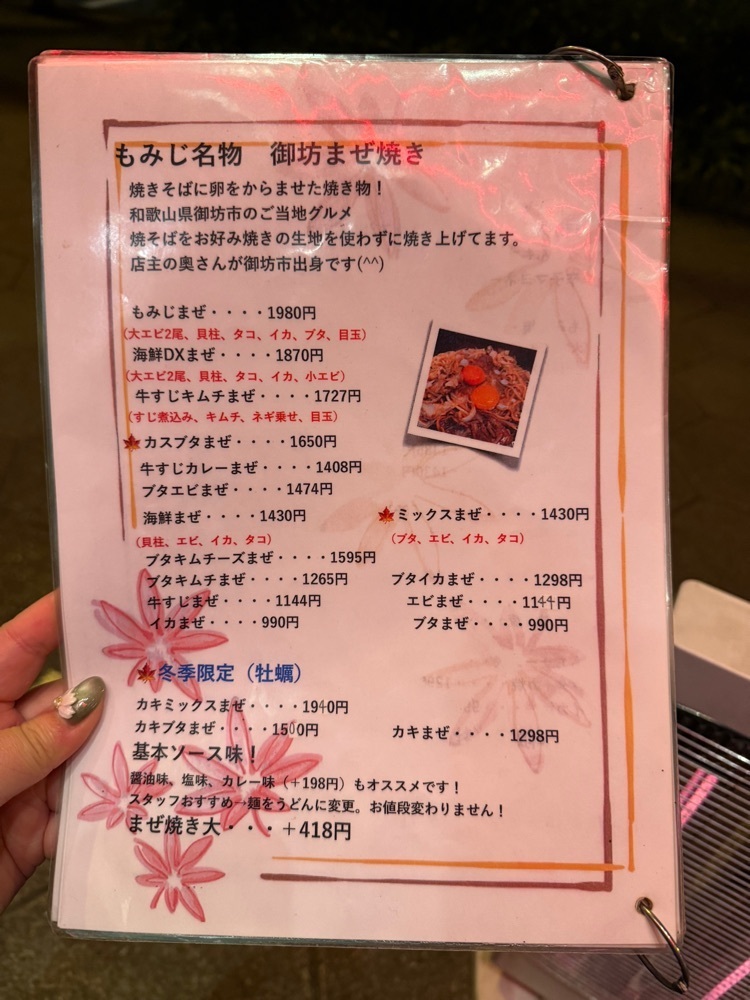 もみじ名物　御坊まぜ焼き
焼きそばに卵をからませた焼き物！
和歌山県御坊市のご当地グルメ
焼そばをお好み焼きの生地を使わずに焼き上げてます。
店主の奥さんが御坊市出身です(^^)
もみじまぜ・・・・1980円
(大エビ2尾、貝柱、タコ、イカ、ブタ、目玉)
海鮮DXまぜ・・・・1870円
(大エビ2尾、貝柱、タコ、イカ、小エビ)
牛すじキムチまぜ・・・・1727円
(すじ煮込み、キムチ、ネギ乗せ、目玉)
カスブタまぜ・・・・1650円
牛すじカレーまぜ・・・・1408円
ブタエビまぜ・・・・1474円
海鮮まぜ・・・・1430円　ミックスまぜ・・・・1430円
(貝柱、エビ、イカ、タコ)　(ブタ、エビ、イカ、タコ)
ブタキムチーズまぜ・・・・1595円
ブタキムチまぜ・・・・1265円　ブタイカまぜ・・・・1298円
牛すじまぜ・・・・1144円　エビまぜ・・・・1144円
イカまぜ・・・・990円　ブタまぜ・・・・990円
冬季限定（牡蠣）
カキミックスまぜ・・・・1940円
カキブタまぜ・・・・1500円　カキまぜ・・・・1298円
基本ソース味！
醤油味、塩味、カレー味（＋198円）もオススメです！
スタッフおすすめ→麺をうどんに変更。お値段変わりません！
まぜ焼き大・・・・＋418円